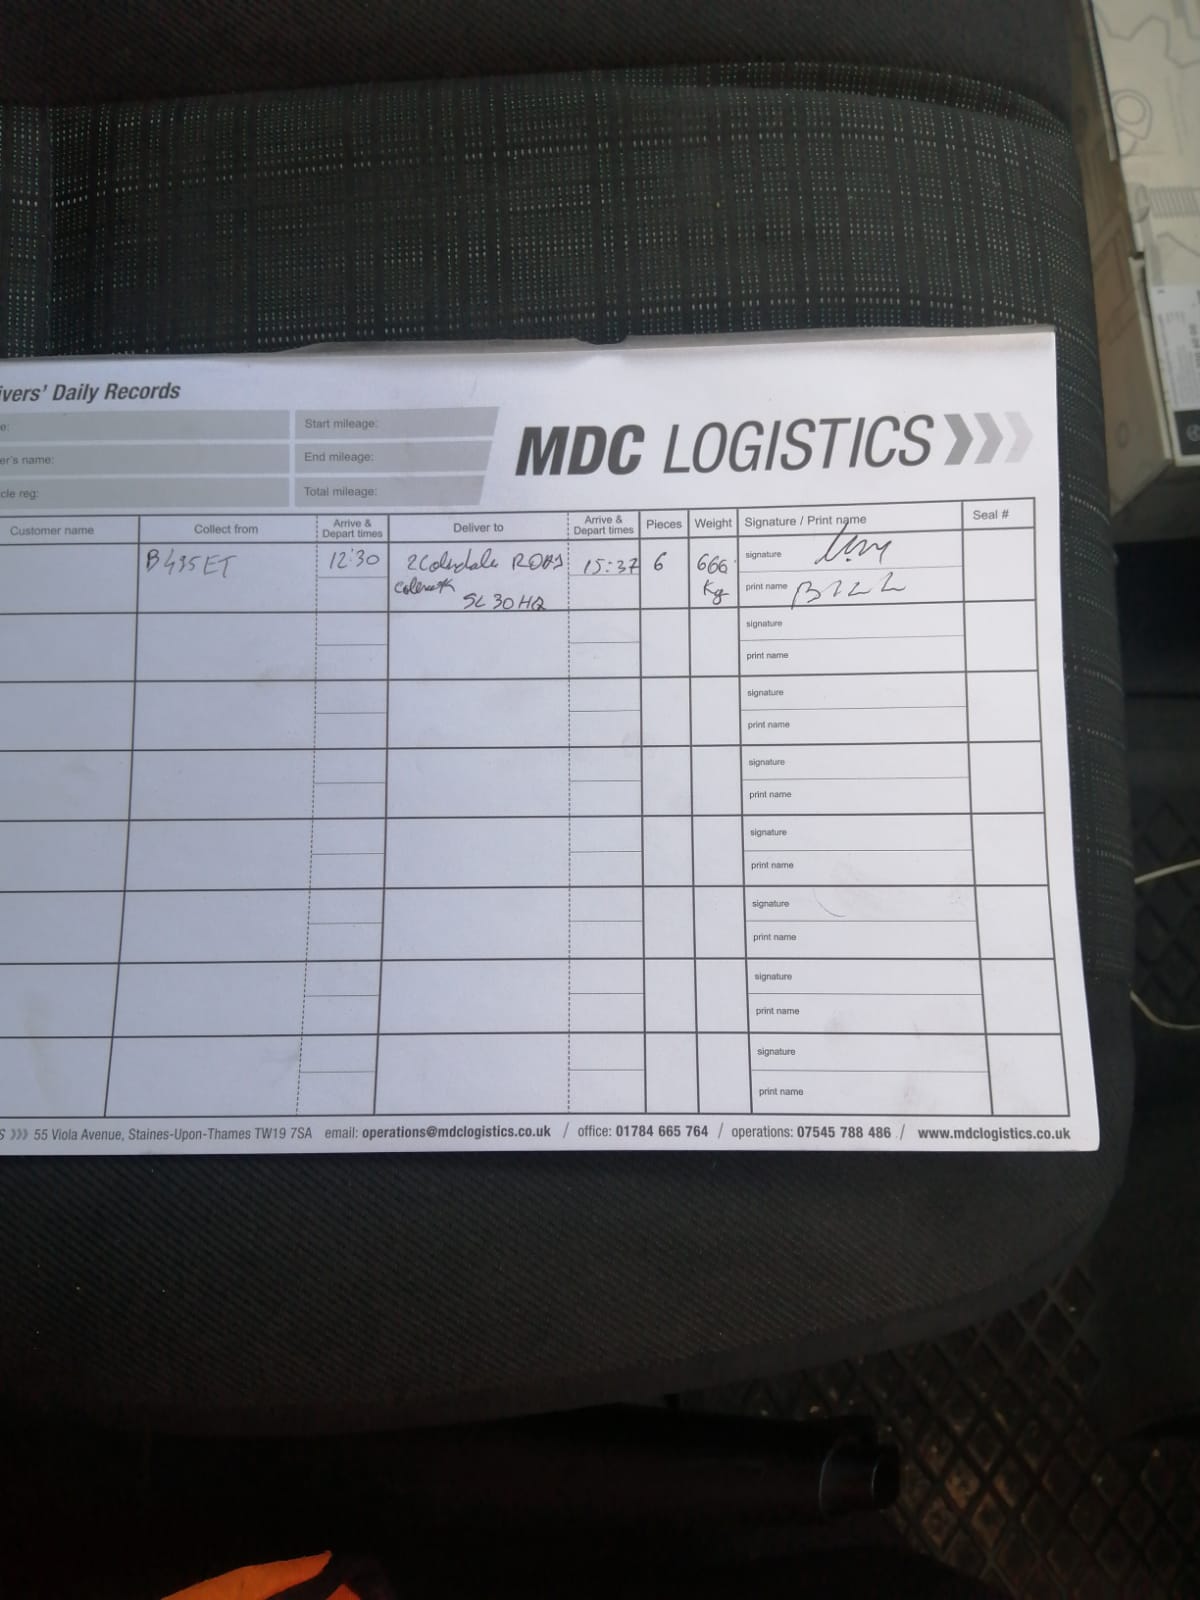 ivers' Daily Records
MDC LOGISTICS
e:
Start mileage:
er's name:
End mileage:
cle reg:
Total mileage:
Customer name
Collect from
Arrive & Depart times
Deliver to
Arrive & Depart times
Pieces
Weight
Signature / Print name
Seal #
B435ET
12:30
15:37
6
666
Kg
SL30HQ
signature
print name
signature
print name
signature
print name
signature
print name
signature
print name
signature
print name
signature
print name
signature
print name
S 55 Viola Avenue, Staines-Upon-Thames TW19 7SA email: operations@mdclogistics.co.uk / office: 01784 665 764 / operations: 07545 788 486 / www.mdclogistics.co.uk